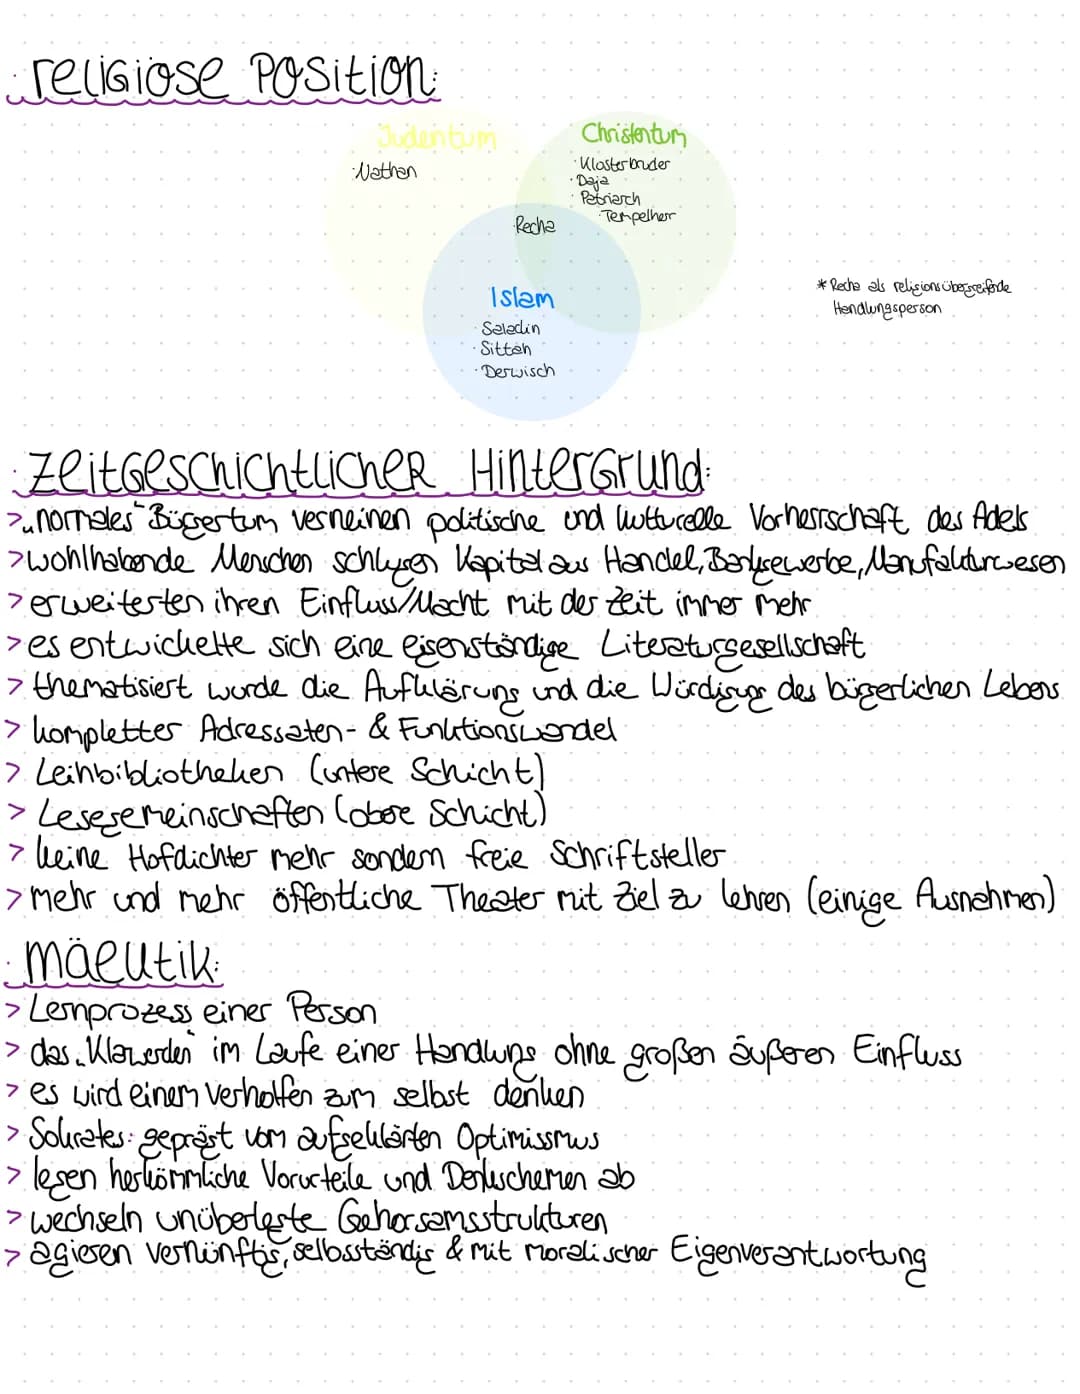 religiöse Position:
Judentum
· Nathan
Christentum
· Klosterbruder
· Daja
· Patriarch
· Tempelherr
Recha
Islam
· Saladin
· Sittah
· Derwisch
* Recha als religionsübergreifende
Handlungsperson
zeitgeschichtlicher Hintergrund:
> „normales" Bürgertum verneinen politische und kulturelle Vorherrschaft des Adels
> wohlhabende Menschen schlugen Kapital aus Handel, Bankgewerbe, Manufakturwesen
> erweiterten ihren Einfluss/Macht mit der Zeit immer mehr
> es entwickelte sich eine eigenständige Literaturgesellschaft
> thematisiert wurde die Aufklärung und die Würdigung des bürgerlichen Lebens
> kompletter Adressaten- & Funktionswandel
> Leihbibliotheken (untere Schicht)
> Lesegemeinschaften (obere Schicht)
> keine Hofdichter mehr sondern freie Schriftsteller
> mehr und mehr öffentliche Theater mit Ziel zu lehren (einige Ausnahmen)
mäeutik:
> Lernprozess einer Person
> das „Klarwerden" im Laufe einer Handlung ohne großen äußeren Einfluss
> es wird einem verholfen zum selbst denken
> Sokrates: geprägt vom aufgeklärten Optimissmus
> legen herkömmliche Vorurteile und Denkschemen ab
> wechseln unüberlegte Gehorsamsstrukturen
> agieren vernünftig, selbsständig & mit moralischer Eigenverantwortung